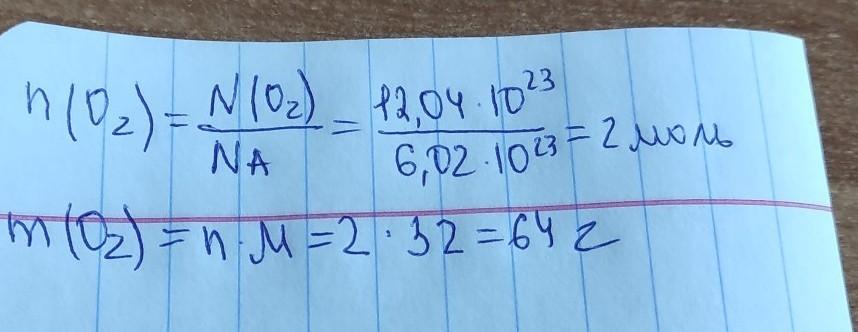 n(O₂) = N(O₂) / NA = 12,04 · 10²³ / 6,02 · 10²³ = 2 моль
m(O₂) = n · M = 2 · 32 = 64 г